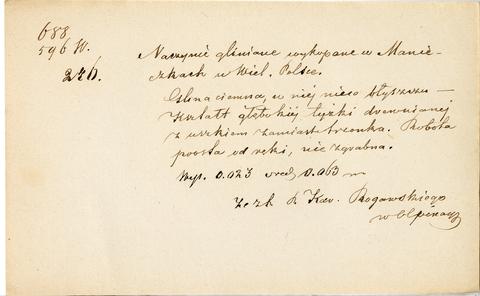 688
596 W.
246.
Naczynie gliniane wykopane w Manie-
czkach w Wiel. Polsce.
Glina ciemna, w niej nieco błyszczu —
Kształt głębokiej łyżki drewnianej
z uszkiem zamiast trzonka. Robota
prosta od ręki, nie zgrabna.
Wys. 0.023 śred. 0.063 m
Ze zb. Kaw. Rogawskiego
w Ołpinach